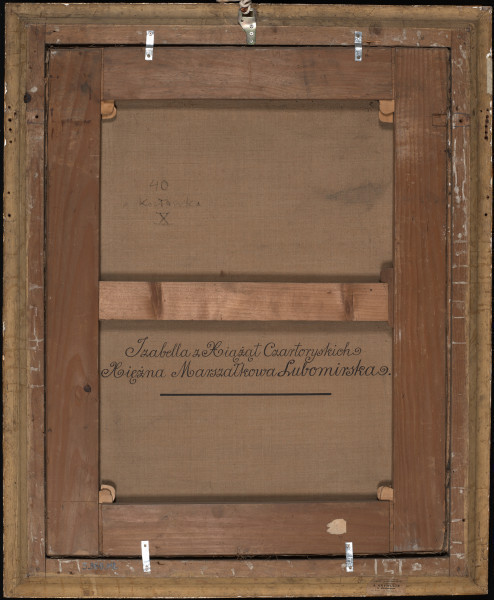 40
X
Izabella z Xiążąt Czartoryskich
Xiężna Marszałkowa Lubomirska.